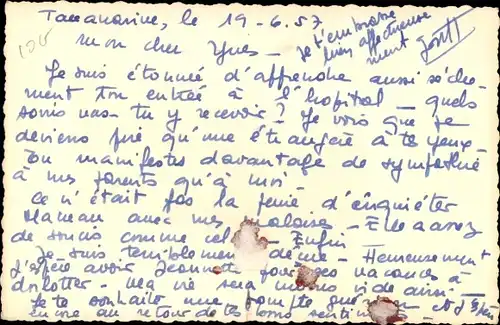 Tananarive, le 19-6.57
100
mon cher Yves - je t'embrasse
bien affectueuse
ment
Je suis étonnée d'apprendre aussi sèche-
ment ton entrée à l'hopital - quels
soins vas-tu y recevoir? Je vois que je
deviens pire qu'une étrangère à tes yeux.
Tu manifestes davantage de sympathie
à mes parents qu'à moi -
Ce n'était pas la peine d'inquiéter
Maman avec mes malaises - Elle a assez
de soucis comme cela - Enfin
Je suis terriblement déçue - Heureusement
j'espère avoir Jeannette pour ses vacances à
- Ma vie sera moins vide ainsi -
Je te souhaite une prompte guérison et j'
au retour de tes bons sentiments